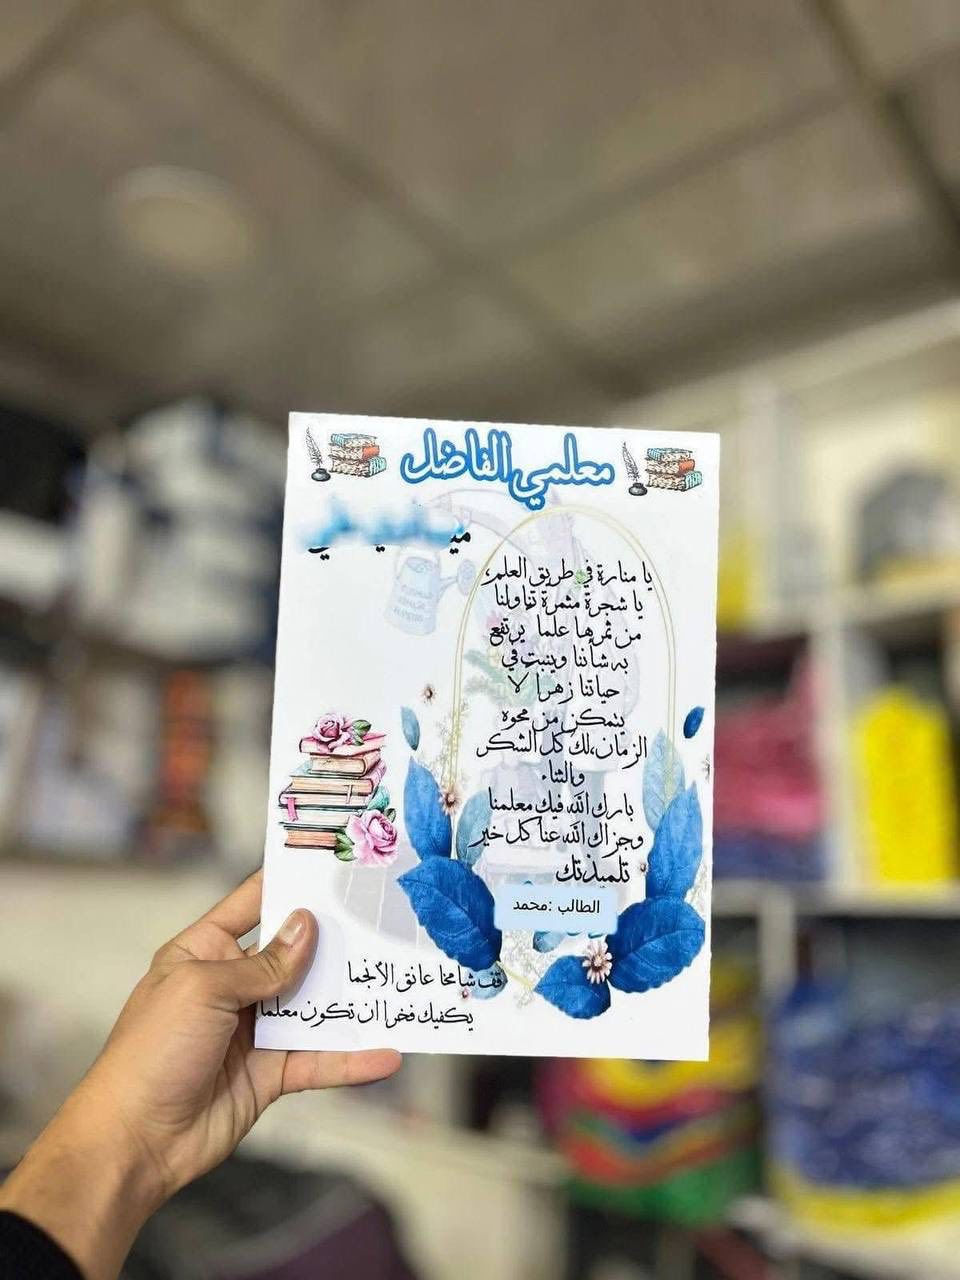 معلمي الفاضل
يا منارة في طريق العلم،
يا شجرة مثمرة تناولنا
من ثمرها علما يرتفع
به شأننا وينبت في
حياتنا زهرا لا
يتمكن من محوه
الزمان،لك كل الشكر
والثناء
بارك الله فيك معلمنا
وجزاك الله عنا كل خير
تلميذتك
الطالب :محمد
قف شامخا عانق الأنجما
يكفيك فخرا ان تكون معلما